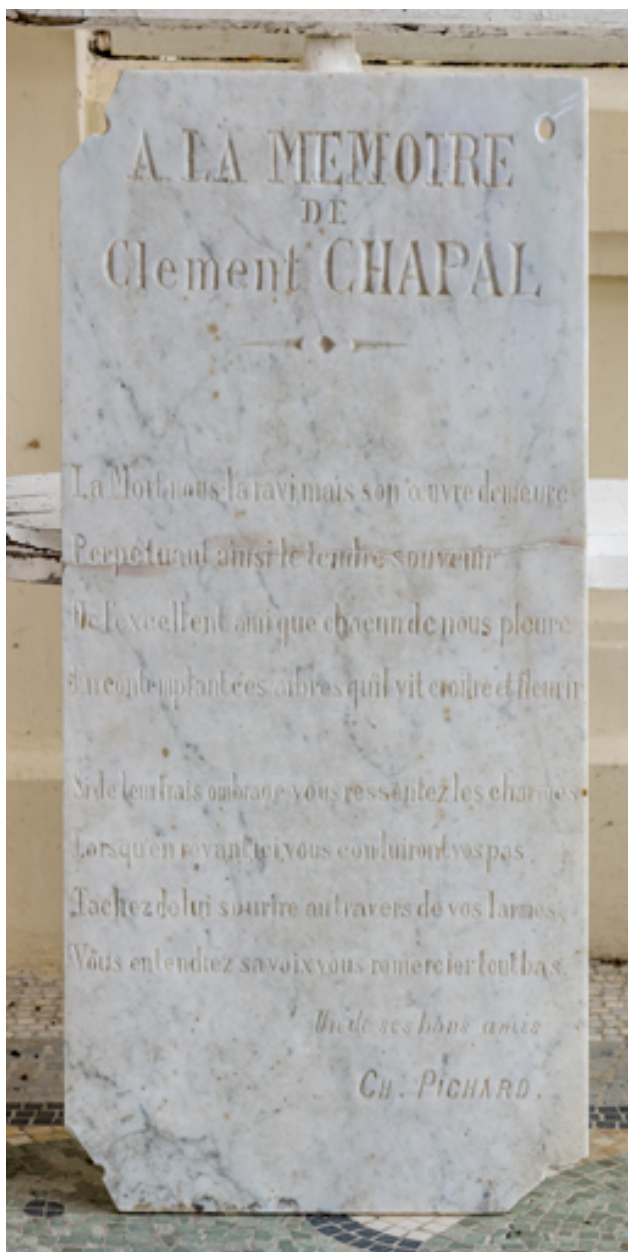 A LA MEMOIRE
DE
Clement CHAPAL
La Mort nous la ravi, mais son œuvre demeure
Perpétuant ainsi le tendre souvenir
De l'excellent ami que chacun de nous pleure
En contemplant ces arbres qu'il vit croître et fleurir
Si de leur frais ombrage vous ressentez les charmes
Lorsqu'en revant ici, vous conduiront vos pas
Tachez de lui sourire au travers de vos larmes,
Vous entendrez sa voix vous remercier tout bas.
Un de ses bons amis
CH. PICHARD.